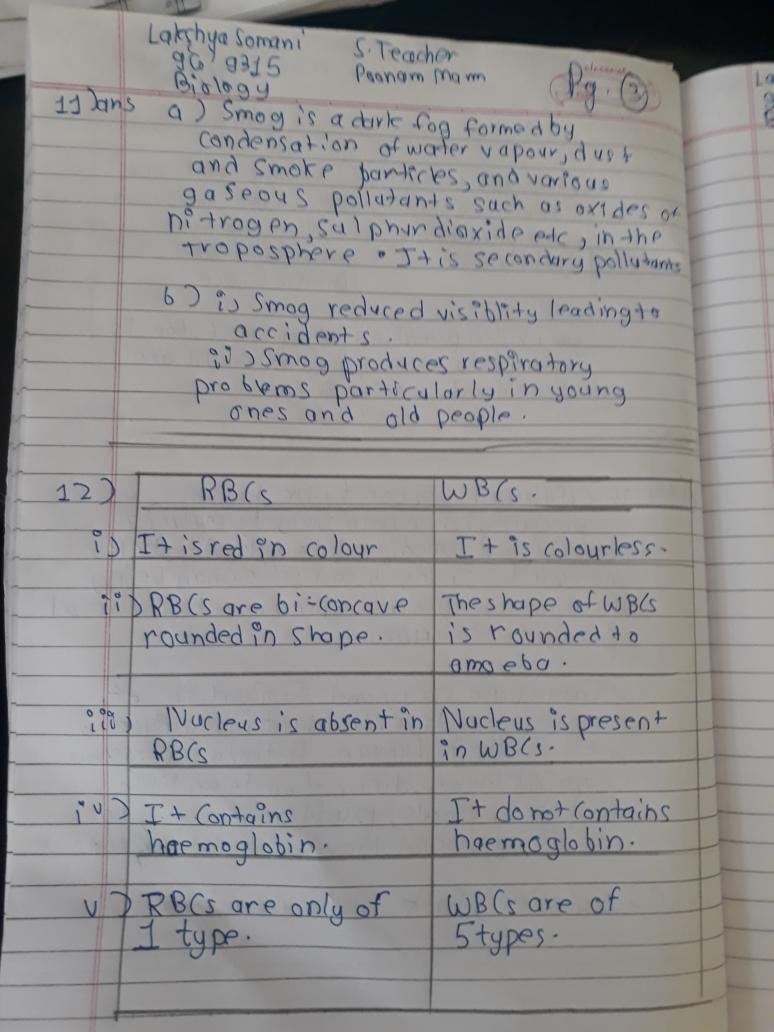 Lakshya Somani
9G 9315
Biology
S. Teacher
Poonam Mam
Pg. 3
11) ans a) Smog is a dark fog formed by
condensation of water vapour, dust
and smoke particles, and various
gaseous pollutants such as oxides of
nitrogen, sulphur dioxide etc, in the
troposphere. It is secondary pollutants
b) i) Smog reduced visiblity leading to
accidents.
ii) Smog produces respiratory
problems particularly in young
ones and old people.
12) RBCs WBCs.
i) It is red in colour It is colourless.
ii) RBCs are bi-concave The shape of WBCs
rounded in shape. is rounded to
amoeba.
iii) Nucleus is absent in Nucleus is present
RBCs in WBCs.
iv) It contains It do not contains
haemoglobin. haemoglobin.
v) RBCs are only of WBCs are of
1 type. 5 types.